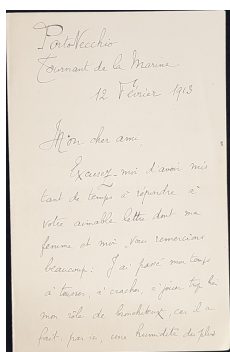 PortoVecchio
Tournant de la Marine
12 Février 1913
Mon cher ami,
Excusez-moi d'avoir mis
tant de temps à répondre à
votre aimable lettre dont ma
femme et moi vous remercions
beaucoup. J'ai passé mon temps
à tousser, à cracher, à jouer trop bien
mon rôle de bronchiteux, car il a
fait, par ici, une humidité du plus